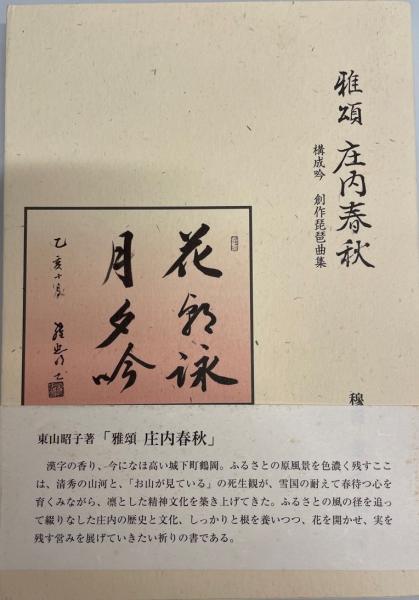 雅頌 庄内春秋
構成吟 創作琵琶曲集
花朝詠
月夕吟
穆
東山昭子著「雅頌 庄内春秋」
漢字の香り、今になほ高い城下町鶴岡。ふるさとの原風景を色濃く残すここ
は、清秀の山河と、「お山が見ている」の死生観が、雪国の耐えて春待つ心を
育くみながら、凛とした精神文化を築き上げてきた。ふるさとの風の径を追っ
て綴りなした庄内の歴史と文化、しっかりと根を養いつつ、花を開かせ、実を
残す営みを展げていきたい祈りの書である。